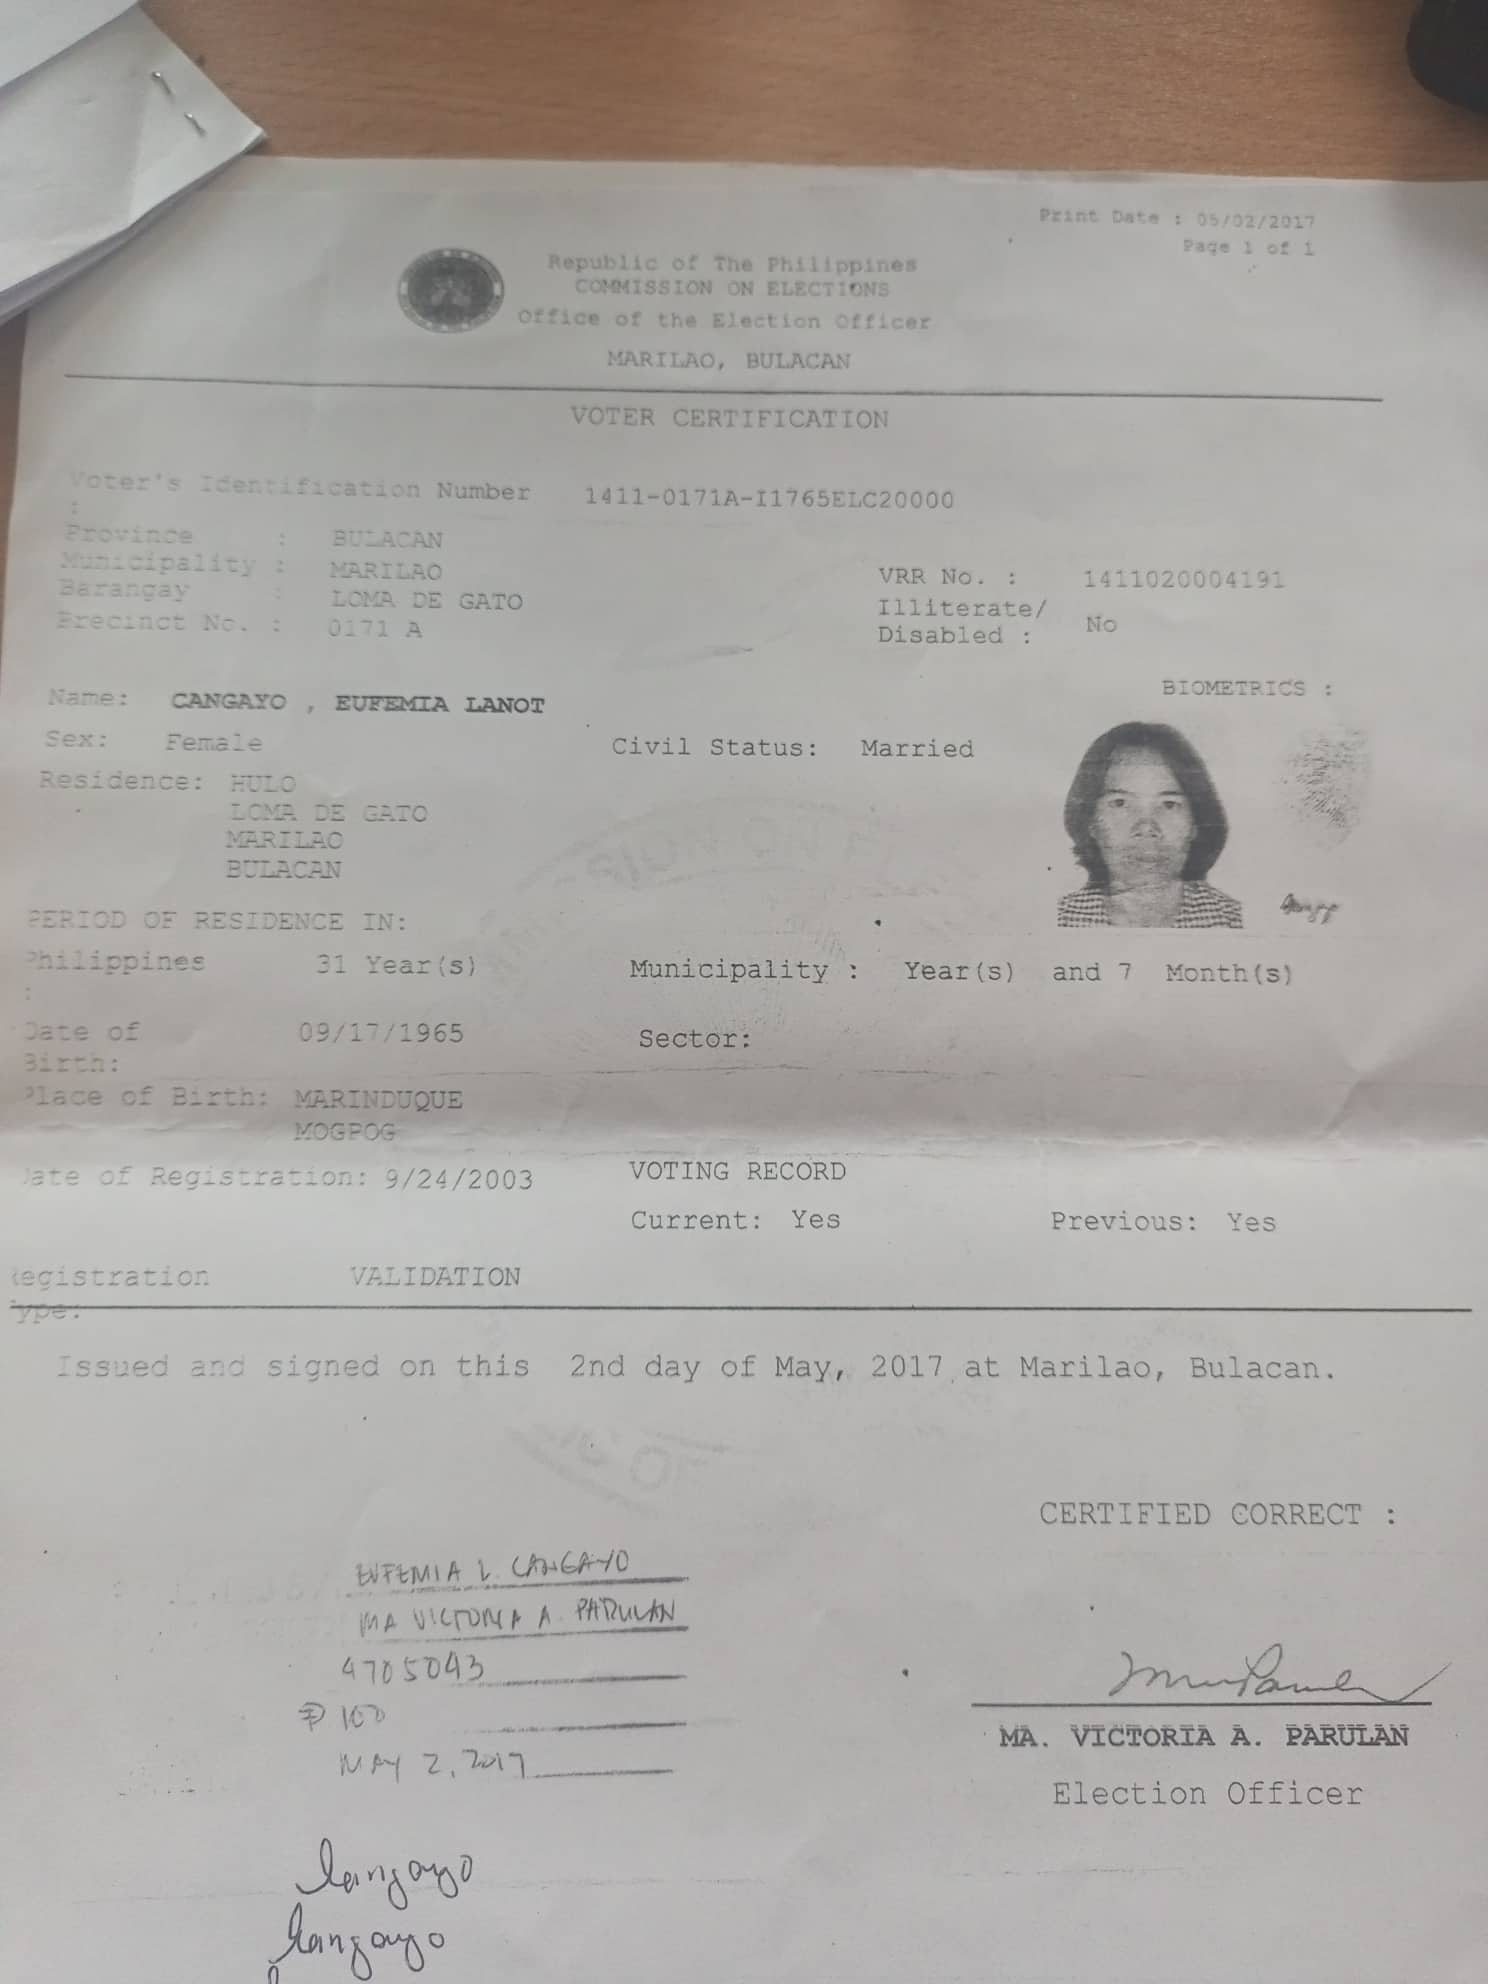 Print Date : 05/02/2017
Page 1 of 1
Republic of The Philippines
COMMISSION ON ELECTIONS
Office of the Election Officer
MARILAO, BULACAN
VOTER CERTIFICATION
Voter's Identification Number 1411-0171A-I1765ELC20000
:
Province : BULACAN
Municipality : MARILAO
Barangay : LOMA DE GATO
Precinct No. : 0171 A
VRR No. : 1411020004191
Illiterate/
Disabled : No
BIOMETRICS :
Name: CANGAYO , EUFEMIA LANOT
Sex: Female Civil Status: Married
Residence: HULO
LOMA DE GATO
MARILAO
BULACAN
PERIOD OF RESIDENCE IN:
Philippines 31 Year(s) Municipality : Year(s) and 7 Month(s)
:
Date of 09/17/1965 Sector:
Birth:
Place of Birth: MARINDUQUE
MOGPOG
Date of Registration: 9/24/2003 VOTING RECORD
Current: Yes Previous: Yes
Registration VALIDATION
Type:
Issued and signed on this 2nd day of May, 2017 at Marilao, Bulacan.
CERTIFIED CORRECT :
EUFEMIA L. CANGAYO
MA VICTORIA A. PARULAN
4705043
₱ 100
MAY 2, 2017
MA. VICTORIA A. PARULAN
Election Officer
Cangayo
Cangayo